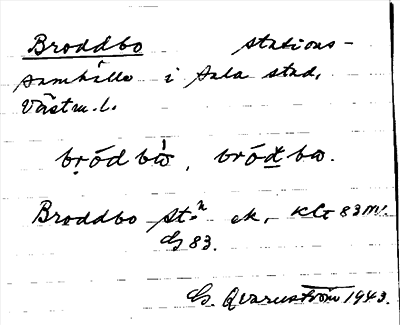 Broddbo stations-
samhälle i Sala stad,
Västm. l.
bródbὼ, bródbω.
Broddbo st:n ek, klt 83 NV.
G 83.
G. Qvarnström 1943.